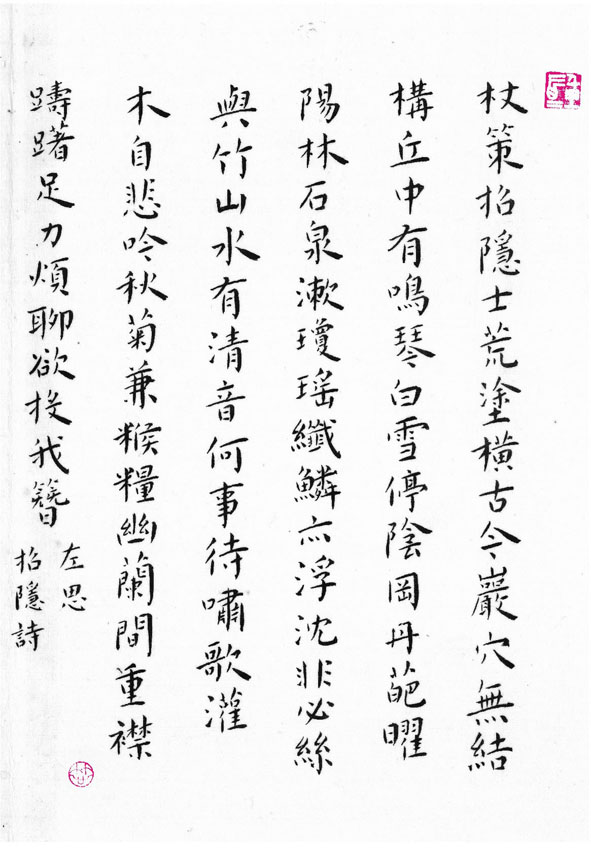 杖策招隱士荒塗橫古今巖穴無結
構丘中有鳴琴白雪停陰岡丹葩曜
陽林石泉漱瓊瑤纖鱗亦浮沈非必絲
與竹山水有清音何事待嘯歌灌
木自悲吟秋菊兼糇糧幽蘭間重襟
躊躇足力煩聊欲投我簪
左思
招隱詩